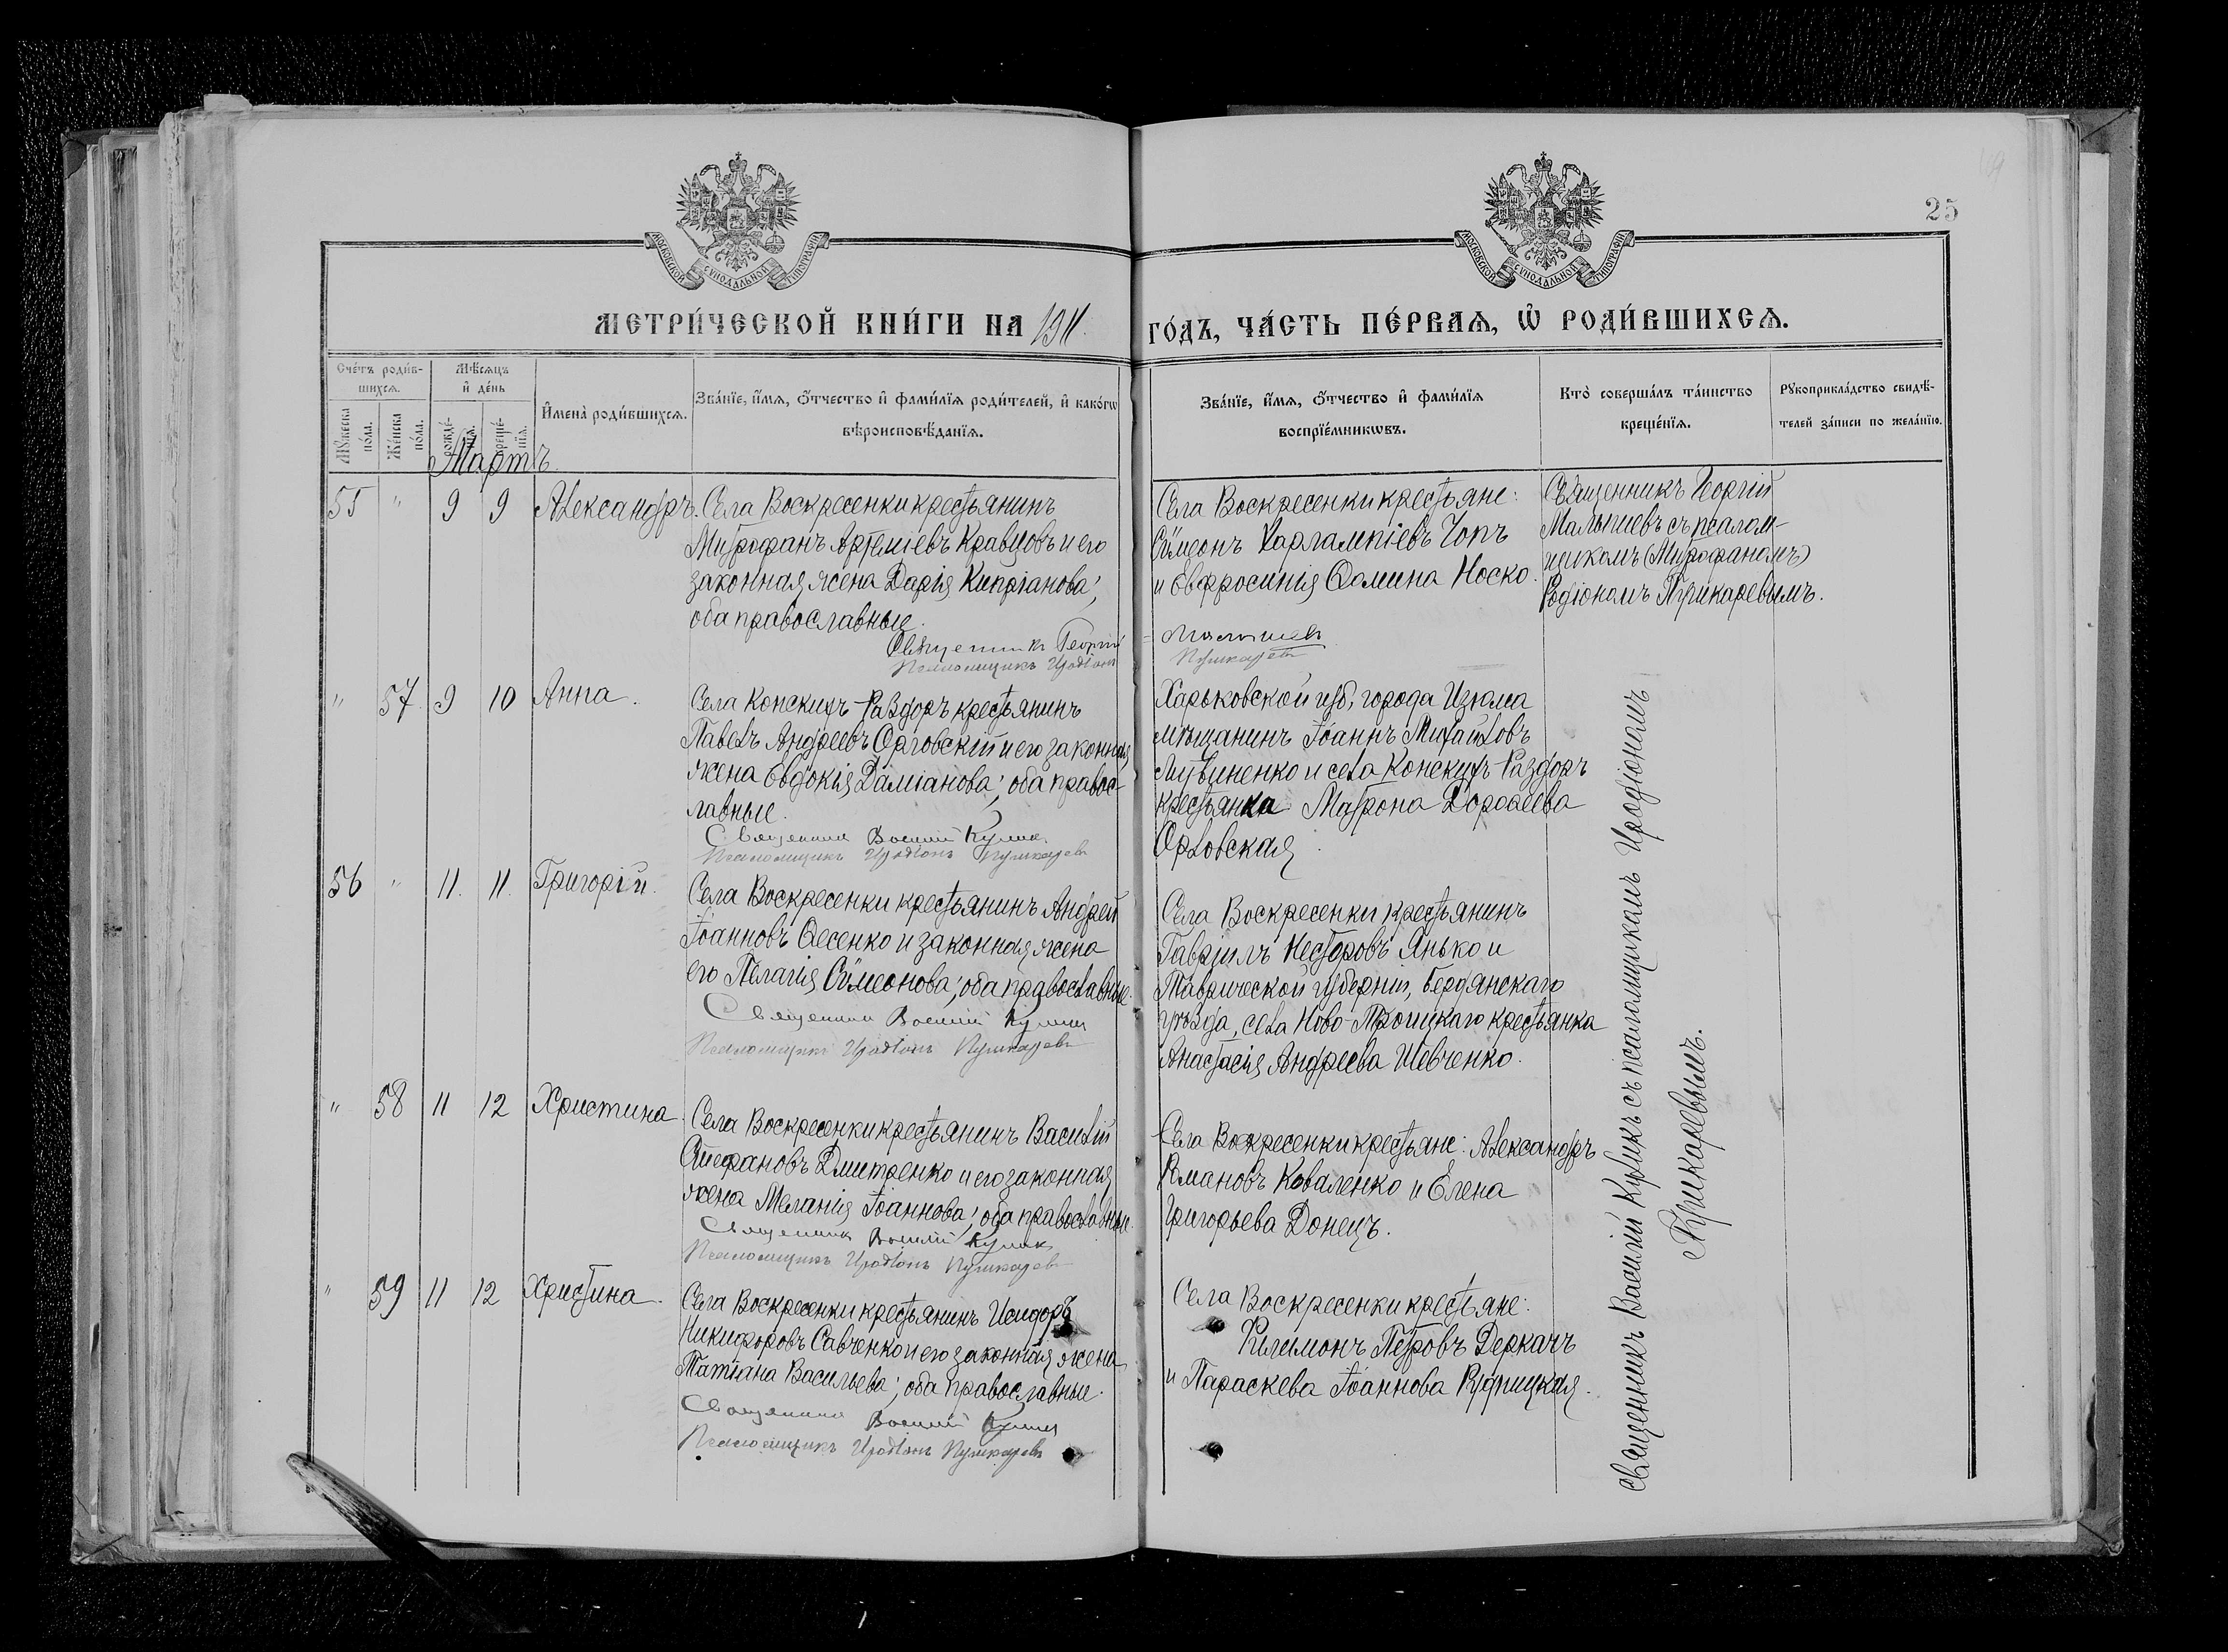 25
МОСКОВСКОЙ СѴНОДАЛЬНОЙ ТИПОГРАФІИ
МОСКОВСКОЙ СѴНОДАЛЬНОЙ ТИПОГРАФІИ
МЕТРИ́ЧЕСКОЙ КНИ́ГИ НА 1911 ГО́ДЪ, ЧА́СТЬ ПЕ́РВАЯ, Ѡ҆ РОДИ́ВШИХСЯ.
Сче́тъ роди́в-
шихсѧ.
Мꙋ́жеска по́ла.
Же́нска по́ла.
Мѣ́сѧцъ
и҆ де́нь
рожде́-
нїѧ.
креще́-
нїѧ.
И҆мена̀ роди́вшихсѧ.
Зва́нїе, и҆́мѧ, ѻ҆́тчество и҆ фами́лїѧ роди́телей, и҆ како́гѡ
вѣроисповѣ́данїѧ.
Зва́нїе, и҆́мѧ, ѻ҆́тчество и҆ фами́лїѧ
воспрїе́мникѡвъ.
Кто̀ соверша́лъ та́инство
креще́нїѧ.
Рꙋкоприкла́дство свидѣ́-
телей за́писи по жела́нїю.
Мартъ
55 " 9 9 Александръ.
Села Воскресенки крестьянинъ
Митрофанъ Артеміевъ Кравцовъ и его
законная жена Дарія Кипріанова;
оба православные.
Священникъ Георгій Малышевъ
Псаломщикъ Иродіонъ Пушкаревъ
Села Воскресенки крестьяне:
Сѵмеонъ Харлампіевъ Чопъ
и Евфросинія Ѳомина Носко.
Священникъ Георгій
Малышевъ съ псалом-
щикомъ (Митрофаномъ)
" 57 9 10 Анна.
Села Конскихъ-Раздоръ крестьянинъ
Павелъ Андреевъ Орловскій и его законная
жена Евдокія Даміанова; оба правос-
лавные.
Священникъ Василій Куликъ
Псаломщикъ Иродіонъ Пушкаревъ
Харьковской губ, города Изюма
мѣщанинъ Іоаннъ Михайловъ
Литвиненко и села Конскихъ-Раздоръ
крестьянка Матрона Дороѳеева
Орловская.
56 " 11. 11. Григорій.
Села Воскресенки крестьянинъ Андрей
Іоанновъ Ѳесенко и законная жена
его Пелагія Сѵмеонова; оба православные.
Священникъ Василій Куликъ
Псаломщикъ Иродіонъ Пушкаревъ
Села Воскресенки крестьянинъ
Гавріилъ Несторовъ Янько и
Таврической губерніи, Бердянскаго
уѣзда, села Ново-Троицкаго крестьянка
Анастасія Андреева Шевченко.
" 58 11 12 Христина.
Села Воскресенки крестьянинъ Василій
Стефановъ Дмитренко и его законная
жена Меланія Іоаннова; оба православные.
Священникъ Василій Куликъ
Псаломщикъ Иродіонъ Пушкаревъ
Села Воскресенки крестьяне: Александръ
Романовъ Коваленко и Елена
Григорьева Донецъ.
" 59 11 12 Христина.
Села Воскресенки крестьянинъ Исидоръ
Никифоровъ Савченко и его законная жена
Татіана Васильева; оба православные.
Священникъ Василій Куликъ
Псаломщикъ Иродіонъ Пушкаревъ
Села Воскресенки крестьяне:
Филимонъ Петровъ Деркачъ
и Параскева Іоаннова Рудницкая.
Священникъ Василій Куликъ съ псаломщикомъ Иродіономъ
Пушкаревымъ.